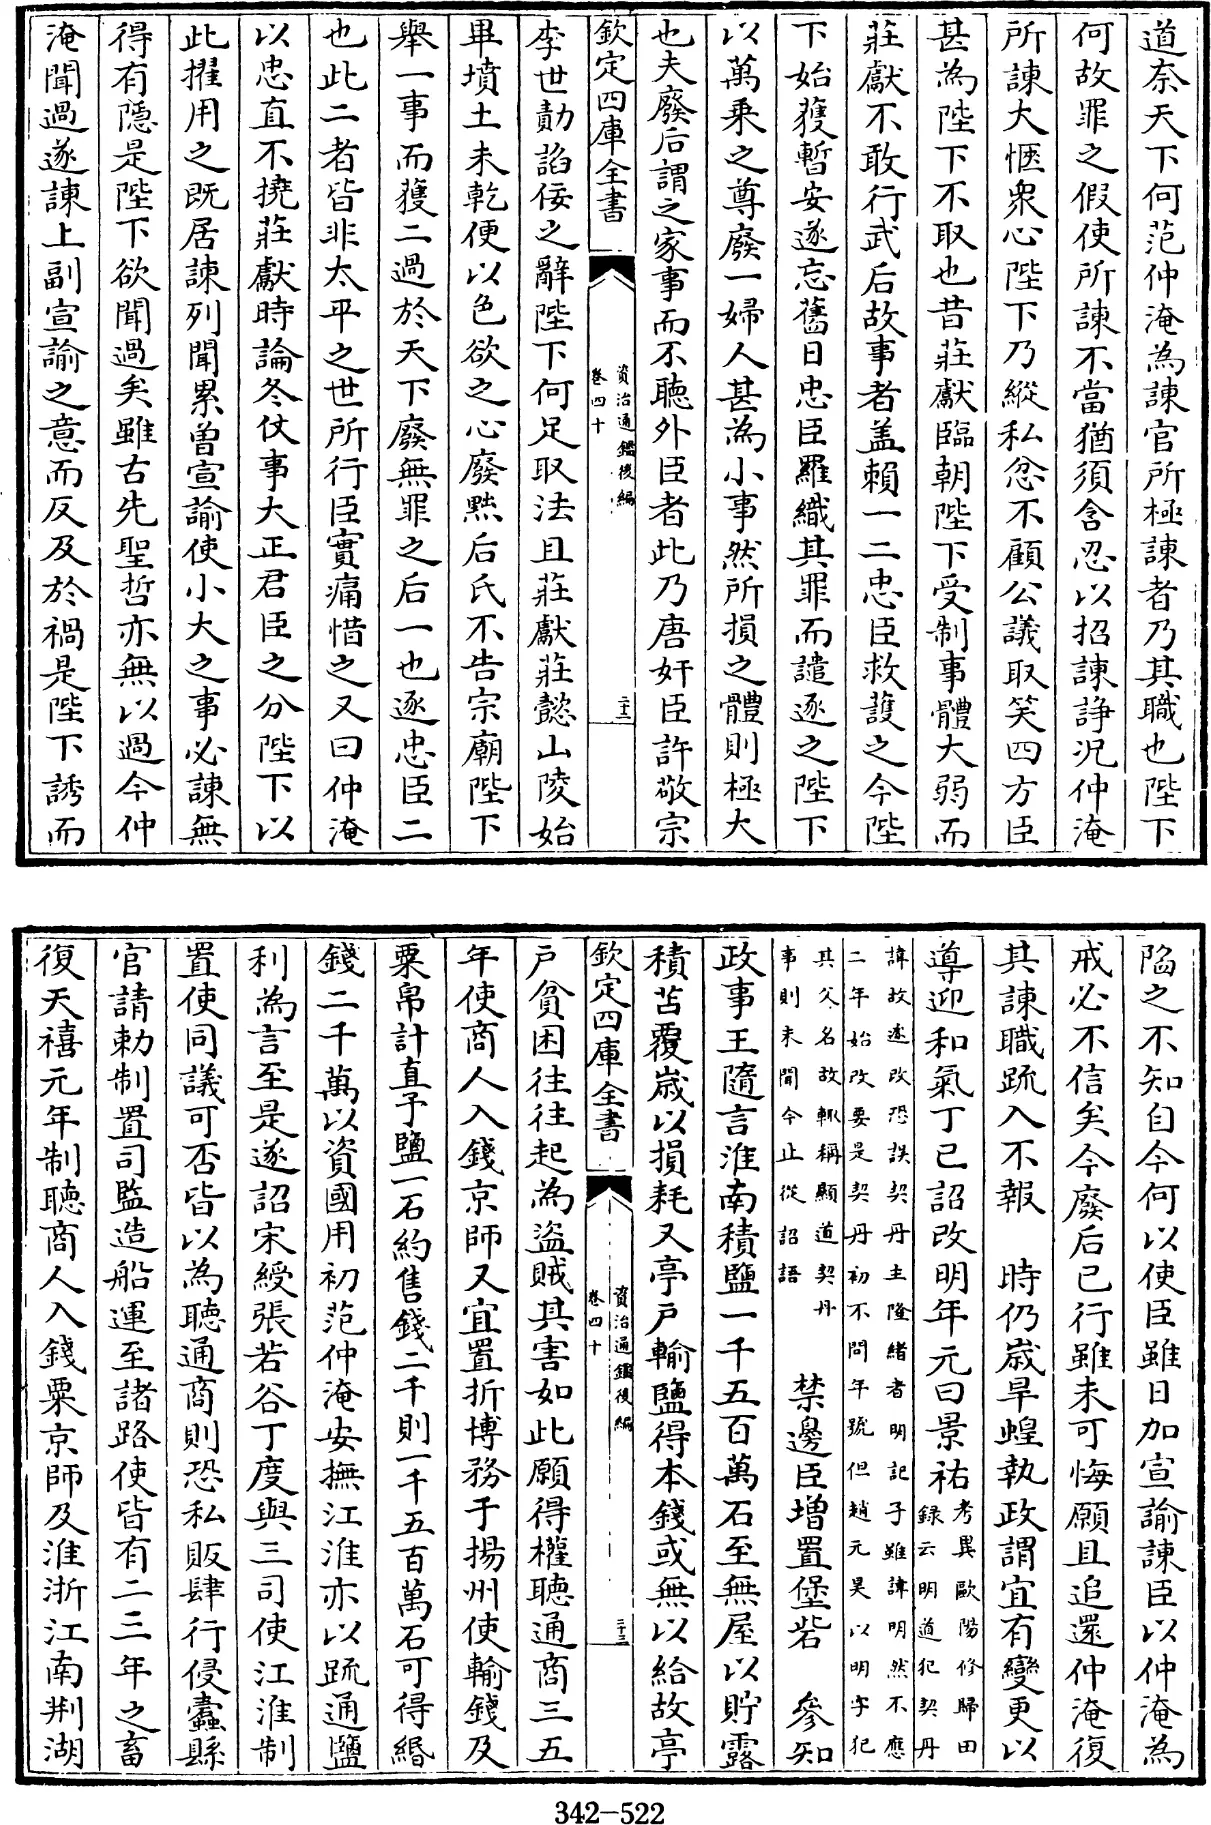 道奈天下何范仲淹為諫官所極諫者乃其職也陛下
何故罪之假使所諫不當猶須含忍以招諫諍況仲淹
所諫大愜衆心陛下乃縱私忿不顧公議取笑四方臣
甚為陛下不取也昔莊獻臨朝陛下受制事體大弱而
莊獻不敢行武后故事者盖賴一二忠臣救護之今陛
下始獲暫安遂忘舊日忠臣羅織其罪而譴逐之陛下
以萬乘之尊廢一婦人甚為小事然所損之體則極大
也夫廢后謂之家事而不聽外臣者此乃唐奸臣許敬宗
欽定四庫全書
資治通鑑後編
卷四十
二十二
李世勣諂佞之辭陛下何足取法且莊獻莊懿山陵始
畢墳土未乾便以色欲之心廢黜后氏不告宗廟陛下
舉一事而獲二過於天下廢無罪之后一也逐忠臣二
也此二者皆非太平之世所行臣實痛惜之又曰仲淹
以忠直不撓莊獻時論冬仗事大正君臣之分陛下以
此擢用之既居諫列聞累曾宣諭使小大之事必諫無
得有隱是陛下欲聞過矣雖古先聖哲亦無以過今仲
淹聞過遂諫上副宣諭之意而反及於禍是陛下誘而
陷之不知自今何以使臣雖日加宣諭諫臣以仲淹為
戒必不信矣今廢后已行雖未可悔願且追還仲淹復
其諫職疏入不報　時仍歲旱蝗執政謂宜有變更以
導迎和氣丁已詔改明年元曰景祐考異歐陽修歸田
録云明道犯契丹
諱故遽改恐誤契丹主隆緒者明記子雖諱明然不應
二年始改要是契丹初不問年號但趙元昊以明字犯
其父名故輒稱顯道契丹
事則未聞今止從詔語　禁邊臣增置堡砦　參知
政事王隨言淮南積鹽一千五百萬石至無屋以貯露
積苫覆歲以損耗又亭戸輸鹽得本錢或無以給故亭
欽定四庫全書
資治通鑑後編
卷四十
二十三
戸貧困往往起為盜賊其害如此願得權聽通商三五
年使商人入錢京師又宜置折博務于揚州使輸錢及
粟帛計直予鹽一石約售錢二千則一千五百萬石可得緡
錢二千萬以資國用初范仲淹安撫江淮亦以疏通鹽
利為言至是遂詔宋綬張若谷丁度與三司使江淮制
置使同議可否皆以為聽通商則恐私販肆行侵蠹縣
官請勅制置司監造船運至諸路使皆有二三年之畜
復天禧元年制聽商人入錢粟京師及淮浙江南荆湖
342-522